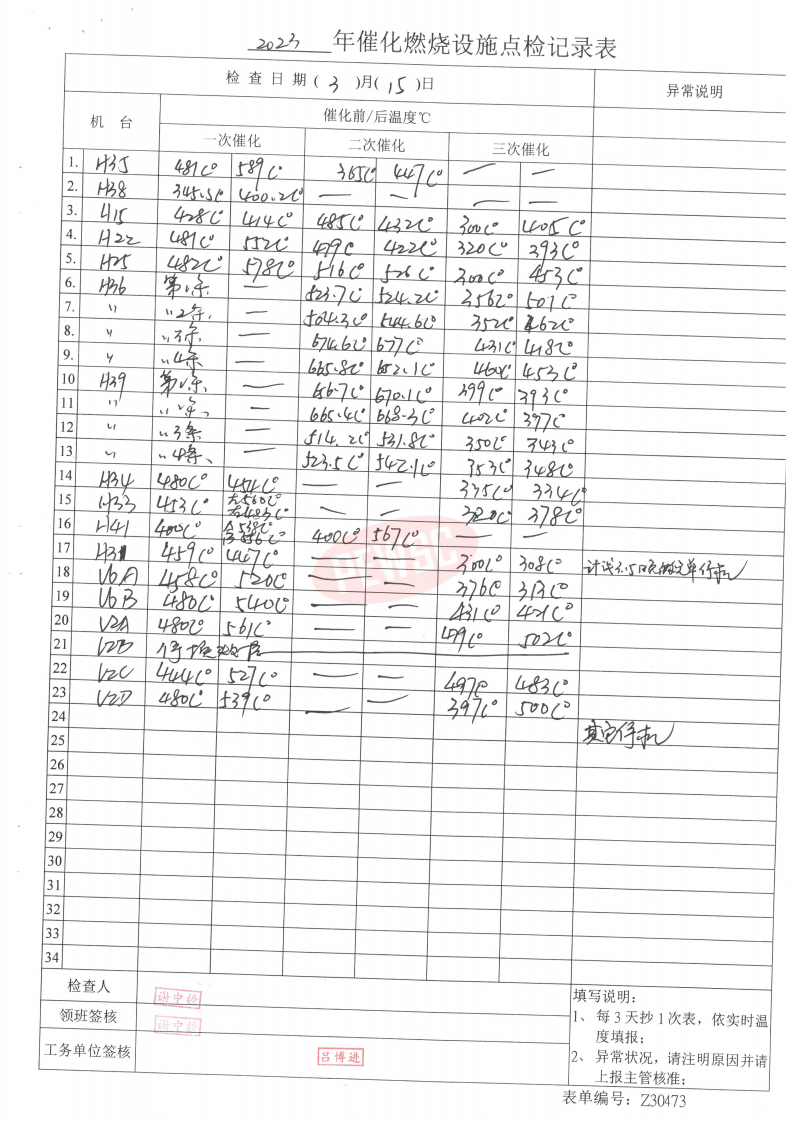 2023 年催化燃烧设施点检记录表
检查日期( 3 )月( 15 )日 异常说明
机 台 催化前/后温度℃
一次催化 二次催化 三次催化
1. H35 481C° 589C° 365C° 447C° — —
2. H38 345.5C° 400.2C° — —
3. H15 428C° 414C° 485C° 432C° 300C° 405C°
4. H22 481C° 552C° 479C° 422C° 320C° 393C°
5. H25 482C° 578C° 516C° 526C° 300C° 453C°
6. H36 第1条 — 523.7C° 524.2C° 356C° 501C°
7. 〃 〃2条 — 504.3C° 544.6C° 352C° 462C°
8. 〃 〃3条 — 674.6C° 677C° 431C° 418C°
9. 〃 〃4条 — 665.8C° 652.1C° 460C° 453C°
10 H39 第1条 — 656.7C° 670.1C° 399C° 393C°
11 〃 〃2条 — 665.4C° 668.3C° 402C° 397C°
12 〃 〃3条 — 514.2C° 531.8C° 350C° 343C°
13 〃 〃4条 — 523.5C° 542.1C° 353C° 348C°
14 H34 480C° 454C° — — 335C° 334C°
15 H33 453C° 左560C° 右483C° — — 320C° 378C°
16 H41 400C° 538C° 656C° 400C° 567C° — —
17 H31 459C° 447C° — — 300C° 308C°
18 V6A 458C° 520C° — — 376C° 313C°
19 V6B 480C° 540C° — — 431C° 421C°
20 V2A 480C° 561C° — — 479C° 502C°
21 V2B
22 V2C 444C° 527C° — — 497C° 483C°
23 V2D 480C° 539C° — — 397C° 500C°
24
25 其它停机
26
27
28
29
30
31
32
33
34
PEWSC
检查人 谢中
领班签核 谢中
工务单位签核 吕博进
填写说明:
1、每3天抄1次表，依实时温
度填报;
2、异常状况，请注明原因并请
上报主管核准;
表单编号: Z30473